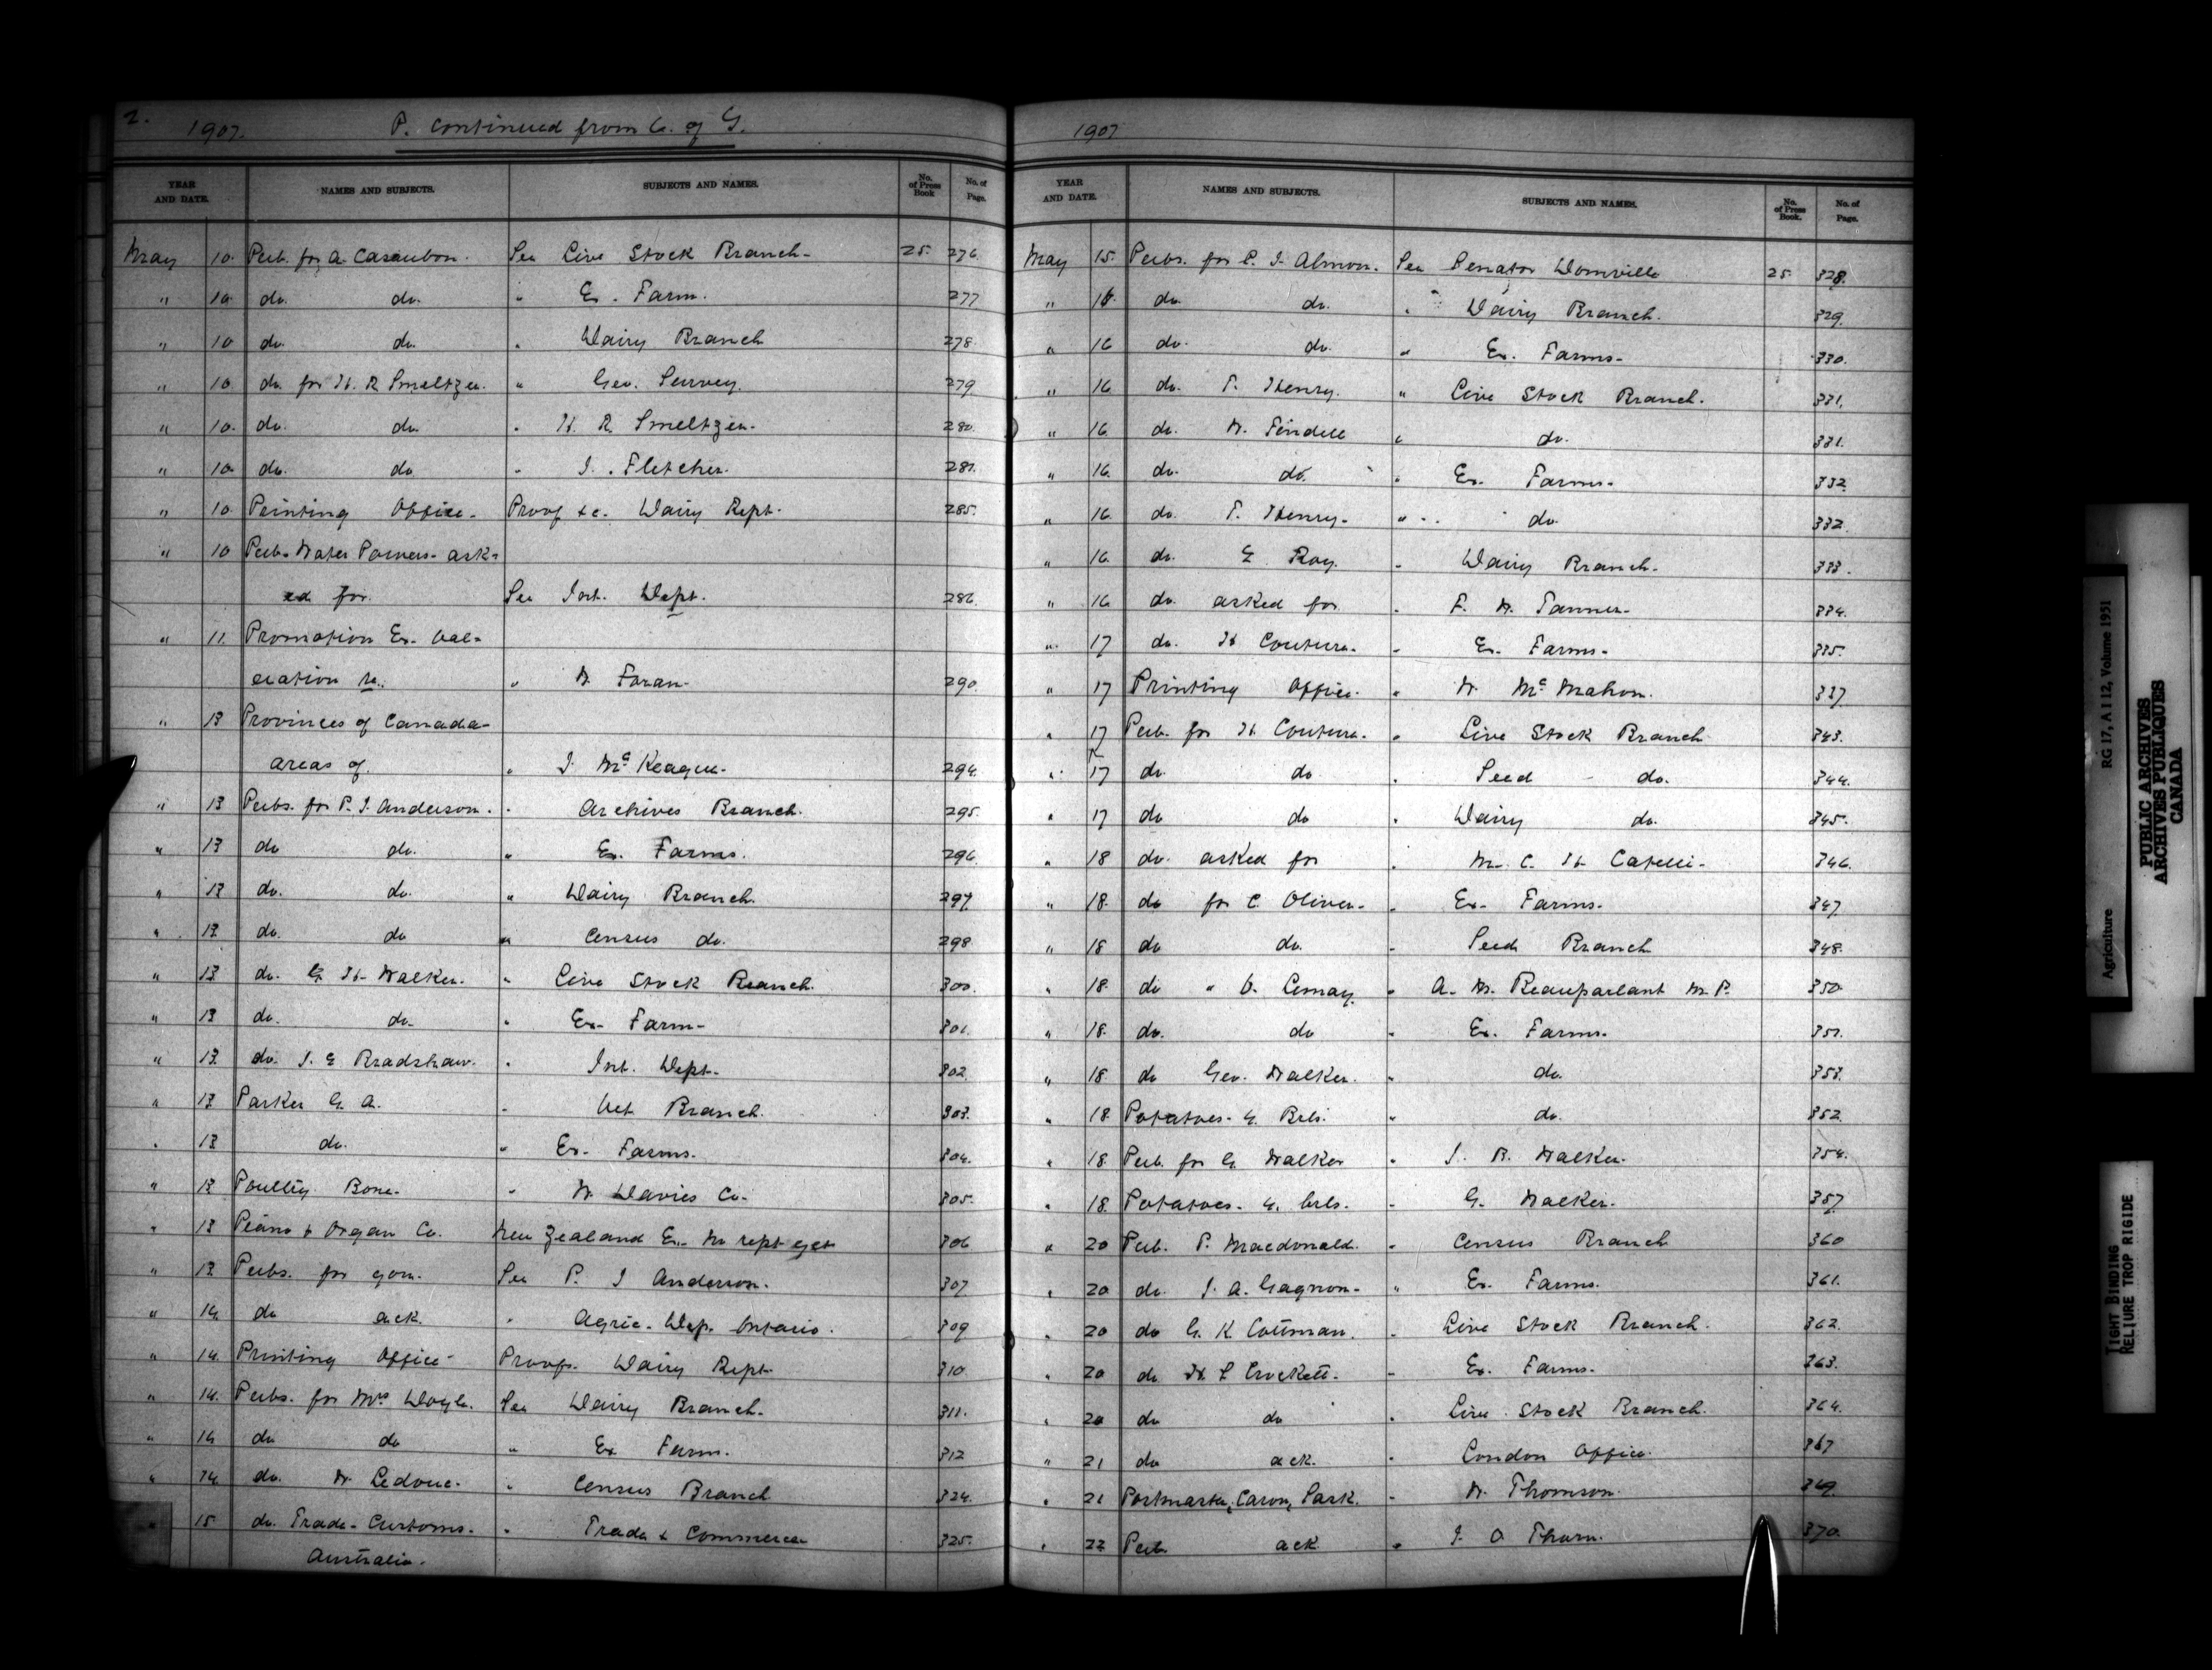 2. 1907. P. continued from C. of G.
YEAR AND DATE. NAMES AND SUBJECTS. SUBJECTS AND NAMES. No. of Press Book No. of Page.
May 10. Pub. for A. Casaubon. See Live Stock Branch- 25. 276.
" 10. do. do. " Ex. Farm. 277
" 10 do. do. " Dairy Branch 278.
" 10. do. for H. R Smeltzer. " Geo. Survey. 279.
" 10. do. do. " H. R. Smeltzer. 280.
" 10. do. do. " J. Fletcher. 281.
" 10. Printing Office. Proof &c. Dairy Rept. 285.
" 10 Pub. Water Powers- ask-
ed for. See Int. Dept. 286.
" 11. Promotion Ex.
re. " W. Foran 290.
" 13 Provinces of Canada-
areas of. " J. McKeague. 294.
" 13 Pubs. for P. J. Anderson. " Archives Branch. 295.
" 13 do do. " Ex. Farms. 296.
" 13 do. do. " Dairy Branch. 297.
" 13. do. do " Census do. 298.
" 13. do. G H. Walker. " Live Stock Branch. 300.
" 13 do. do. " Ex. Farm- 301.
" 13. do. J. E Bradshaw. " Int. Dept. 302.
" 13 Parker G. A. " Vet Branch. 303.
" 13 do. " Ex. Farms. 304.
" 13 Poultry Bone. " W. Davies Co. 305.
" 13 Piano & Organ Co. New Zealand Ex. 306
" 13 Pubs. for See P. J Anderson. 307.
" 14. do ack. " Agric. Dep. Ontario. 309
" 14. Printing Office Proofs. Dairy Rept. 310.
" 14. Pubs. for Mrs Doyle. See Dairy Branch. 311.
" 14 do do " Ex Farm. 312
" 14. do. W Ledouc. " Census Branch 324.
" 15. do. Trade- Customs. " Trade & Commerce 325.
Australia.
1907
YEAR AND DATE. NAMES AND SUBJECTS. SUBJECTS AND NAMES. No. of Press Book. No. of Page.
May 15. Pubs. for E. J. Almon. See Senator Domville 25 328.
" 16. do. do. " Dairy Branch. 329.
" 16 do. do. " Ex. Farms- 330.
" 16. do. T. Henry. " Live Stock Branch. 331.
" 16. do. W. Tindell " do. 331.
" 16. do. do. " Ex. Farms. 332.
" 16. do. T. Henry. " do. 332.
" 16. do. E. Roy. " Dairy Branch. 333.
" 16 do. asked for " F. W. Tanner. 334.
" 17 do. H Couture. " Ex. Farms. 335.
" 17 Printing Office. " W. McMahon. 337
" 17 Pub. for H. Couture. " Live Stock Branch 343.
" 17 do do " Seed do. 344.
" 17 do do " Dairy do. 345.
" 18 do. asked for " M. C. H. Catelli- 346.
" 18. do for C Oliver. " Ex. Farms. 347.
" 18 do do. " Seed Branch 348.
" 18. do " O. Lemay. " A. M. Beauparlant M. P. 350
" 18. do. do " Ex. Farms. 351.
" 18. do Geo. Walker. " do. 353.
" 18 Potatoes- 4. Brls. " do. 352.
" 18. Pub. for G. Walker " J. R. Walker. 354.
" 18. Potatoes- 4. brls. " G. Walker. 357
" 20 Pub. P. Macdonald. " Census Branch 360
" 20 do. J. A. Gagnon- " Ex. Farms. 361.
" 20 do G. K Cottman. " Live Stock Branch. 362.
" 20 do H. S Crockett. " Ex. Farms. 363.
" 20 do do " Live Stock Branch. 364.
" 21 do ack. " London Office. 367
" 21 Postmaster, Caron, Sask. " W. Thomson. 369.
" 22 Pub. ack " J. O Thorn. 370.
Agriculture RG 17, A I 12, Volume 1951
PUBLIC ARCHIVES
ARCHIVES PUBLIQUES
CANADA
TIGHT BINDING
RELIURE TROP RIGIDE